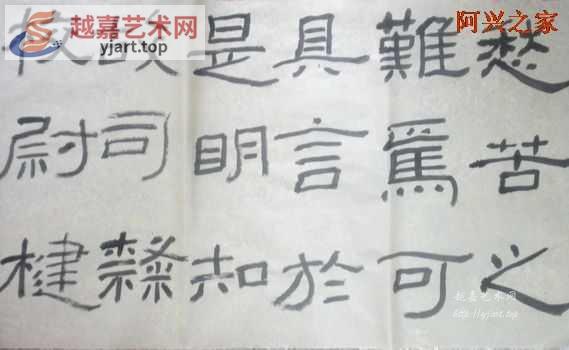 越嘉艺术网
yjart.top
阿兴之家
愁苦之
難焉可
具言於
是明知
故司隸
校尉楗
越嘉艺术网
http://yjart.top